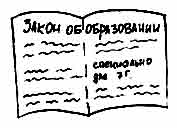 ЗАКОН ОБ ОБРАЗОВАНИИ
СПЕЦИАЛЬНО
ДЛЯ 7 Г.